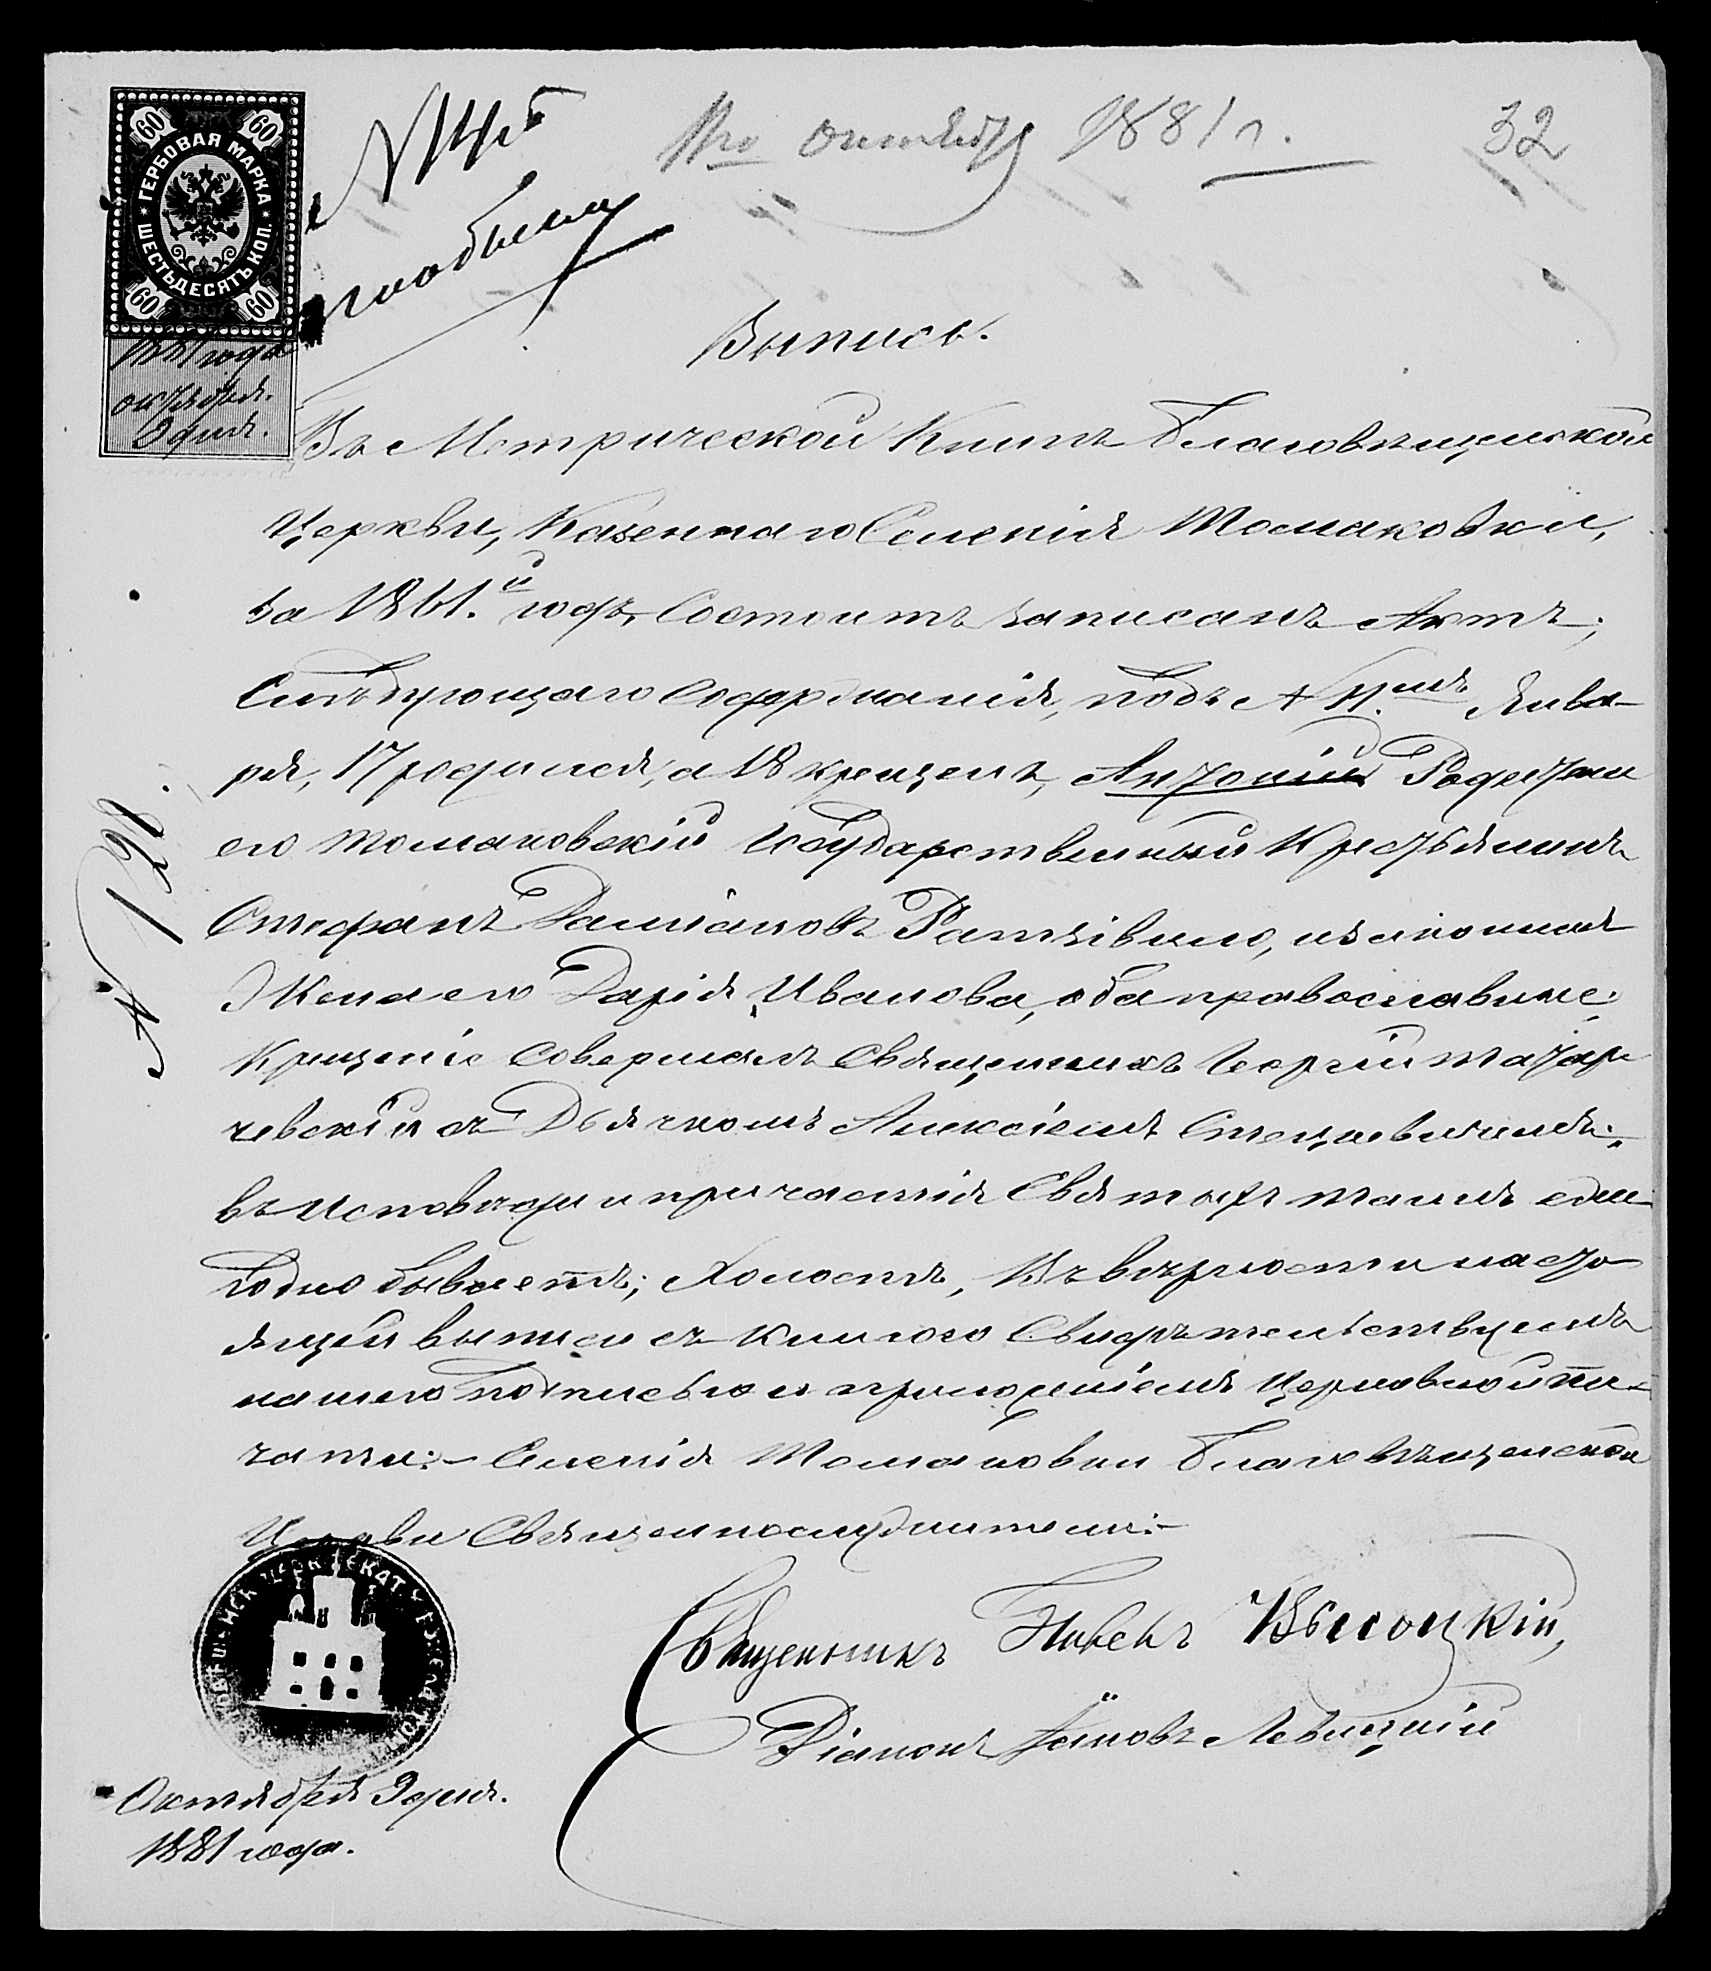 60 60
ГЕРБОВАЯ МАРКА
ШЕСТЬДЕСЯТЪ КОП.
60 60
1881 года
октября
9 дня.
Октября 1881 г.
32
Выпись.
Въ Метрической Книгѣ Благовѣщенской
Церкви, Казеннаго Селенія Томаковки,
за 1861.й годъ, Состоитъ записанъ Актъ;
Слѣдующаго Содержанія, подъ № 11.мъ Янва-
ря, 17 родился, а 18 крещенъ, Антоній Родители
его Томаковскій Государственный Крестьянинъ
Стефанъ Даміановъ, и законная
Жена его Дарія Иванова, оба православные;
Крещеніе Совершалъ Священникъ Георгій
чевскій съ Дьячкомъ Алексіемъ
въ Исповѣди и причастія Святыхъ таинъ еже
годно бываетъ; Холостъ, Въ вѣрности насто
ящей выписи съ книгою Свидѣтельствуемъ
нашею подписью и приложеніемъ Церковной пе-
чати:- Селенія Томаковки Благовѣщенской
Церкви Священнослужители:-
Священникъ Павелъ Высоцкій,
Діаконъ Іаковъ Левицкій
Октября 9 дня.
1881 года.
№ 128.